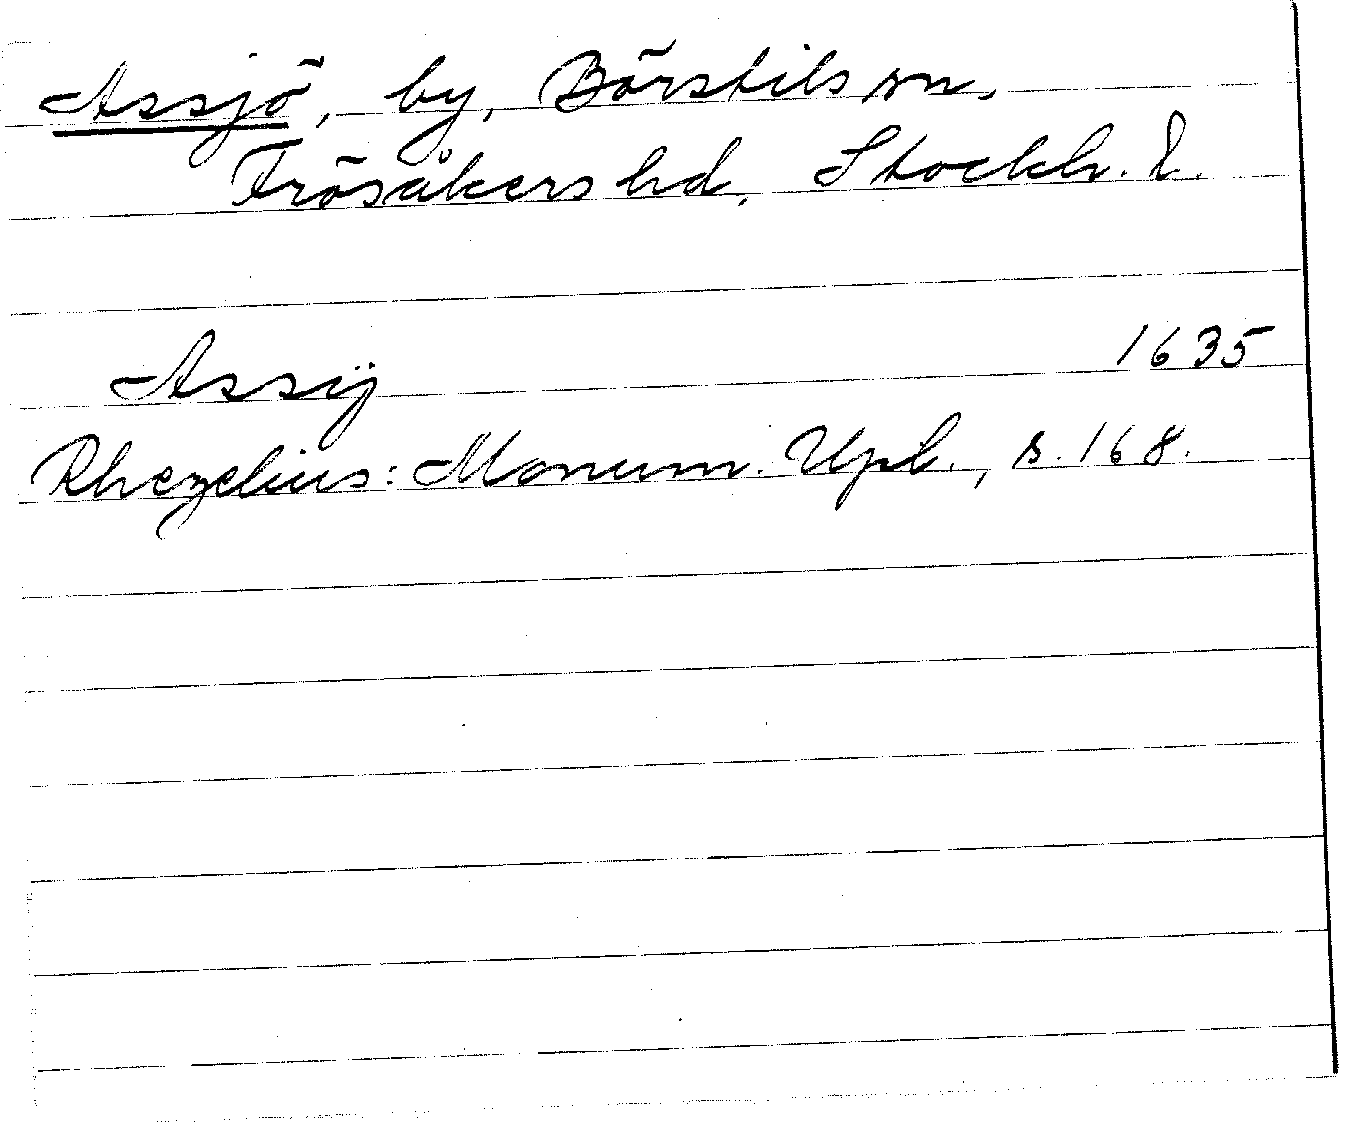 Assjö, by, Börstils sn,
Frösåkers hd, Stockh. l.
Assÿ 1635
Rhezelius: Monum. Upl., s. 168.